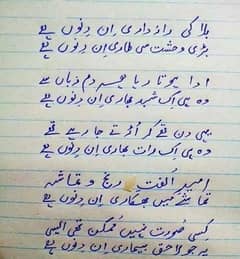 بلا کی رازداری ان دنوں ہے
بڑی وحشت سی طاری ان دنوں ہے
ادا ہوتا رہا جسے دم زباں سے
وہ ہی اک شہد بھاری ان دنوں ہے
یہی دن تھے کہ اُڑتے جا رہے تھے
وہ ہی اک رات بھاری ان دنوں ہے
امید اُلفت رنج و تماشہ
تماشے میں بھکاری ان دنوں ہے
کسی صورت نہیں مُمکن تھی ایسی
یہ جو لاحق بیماری ان دنوں ہے